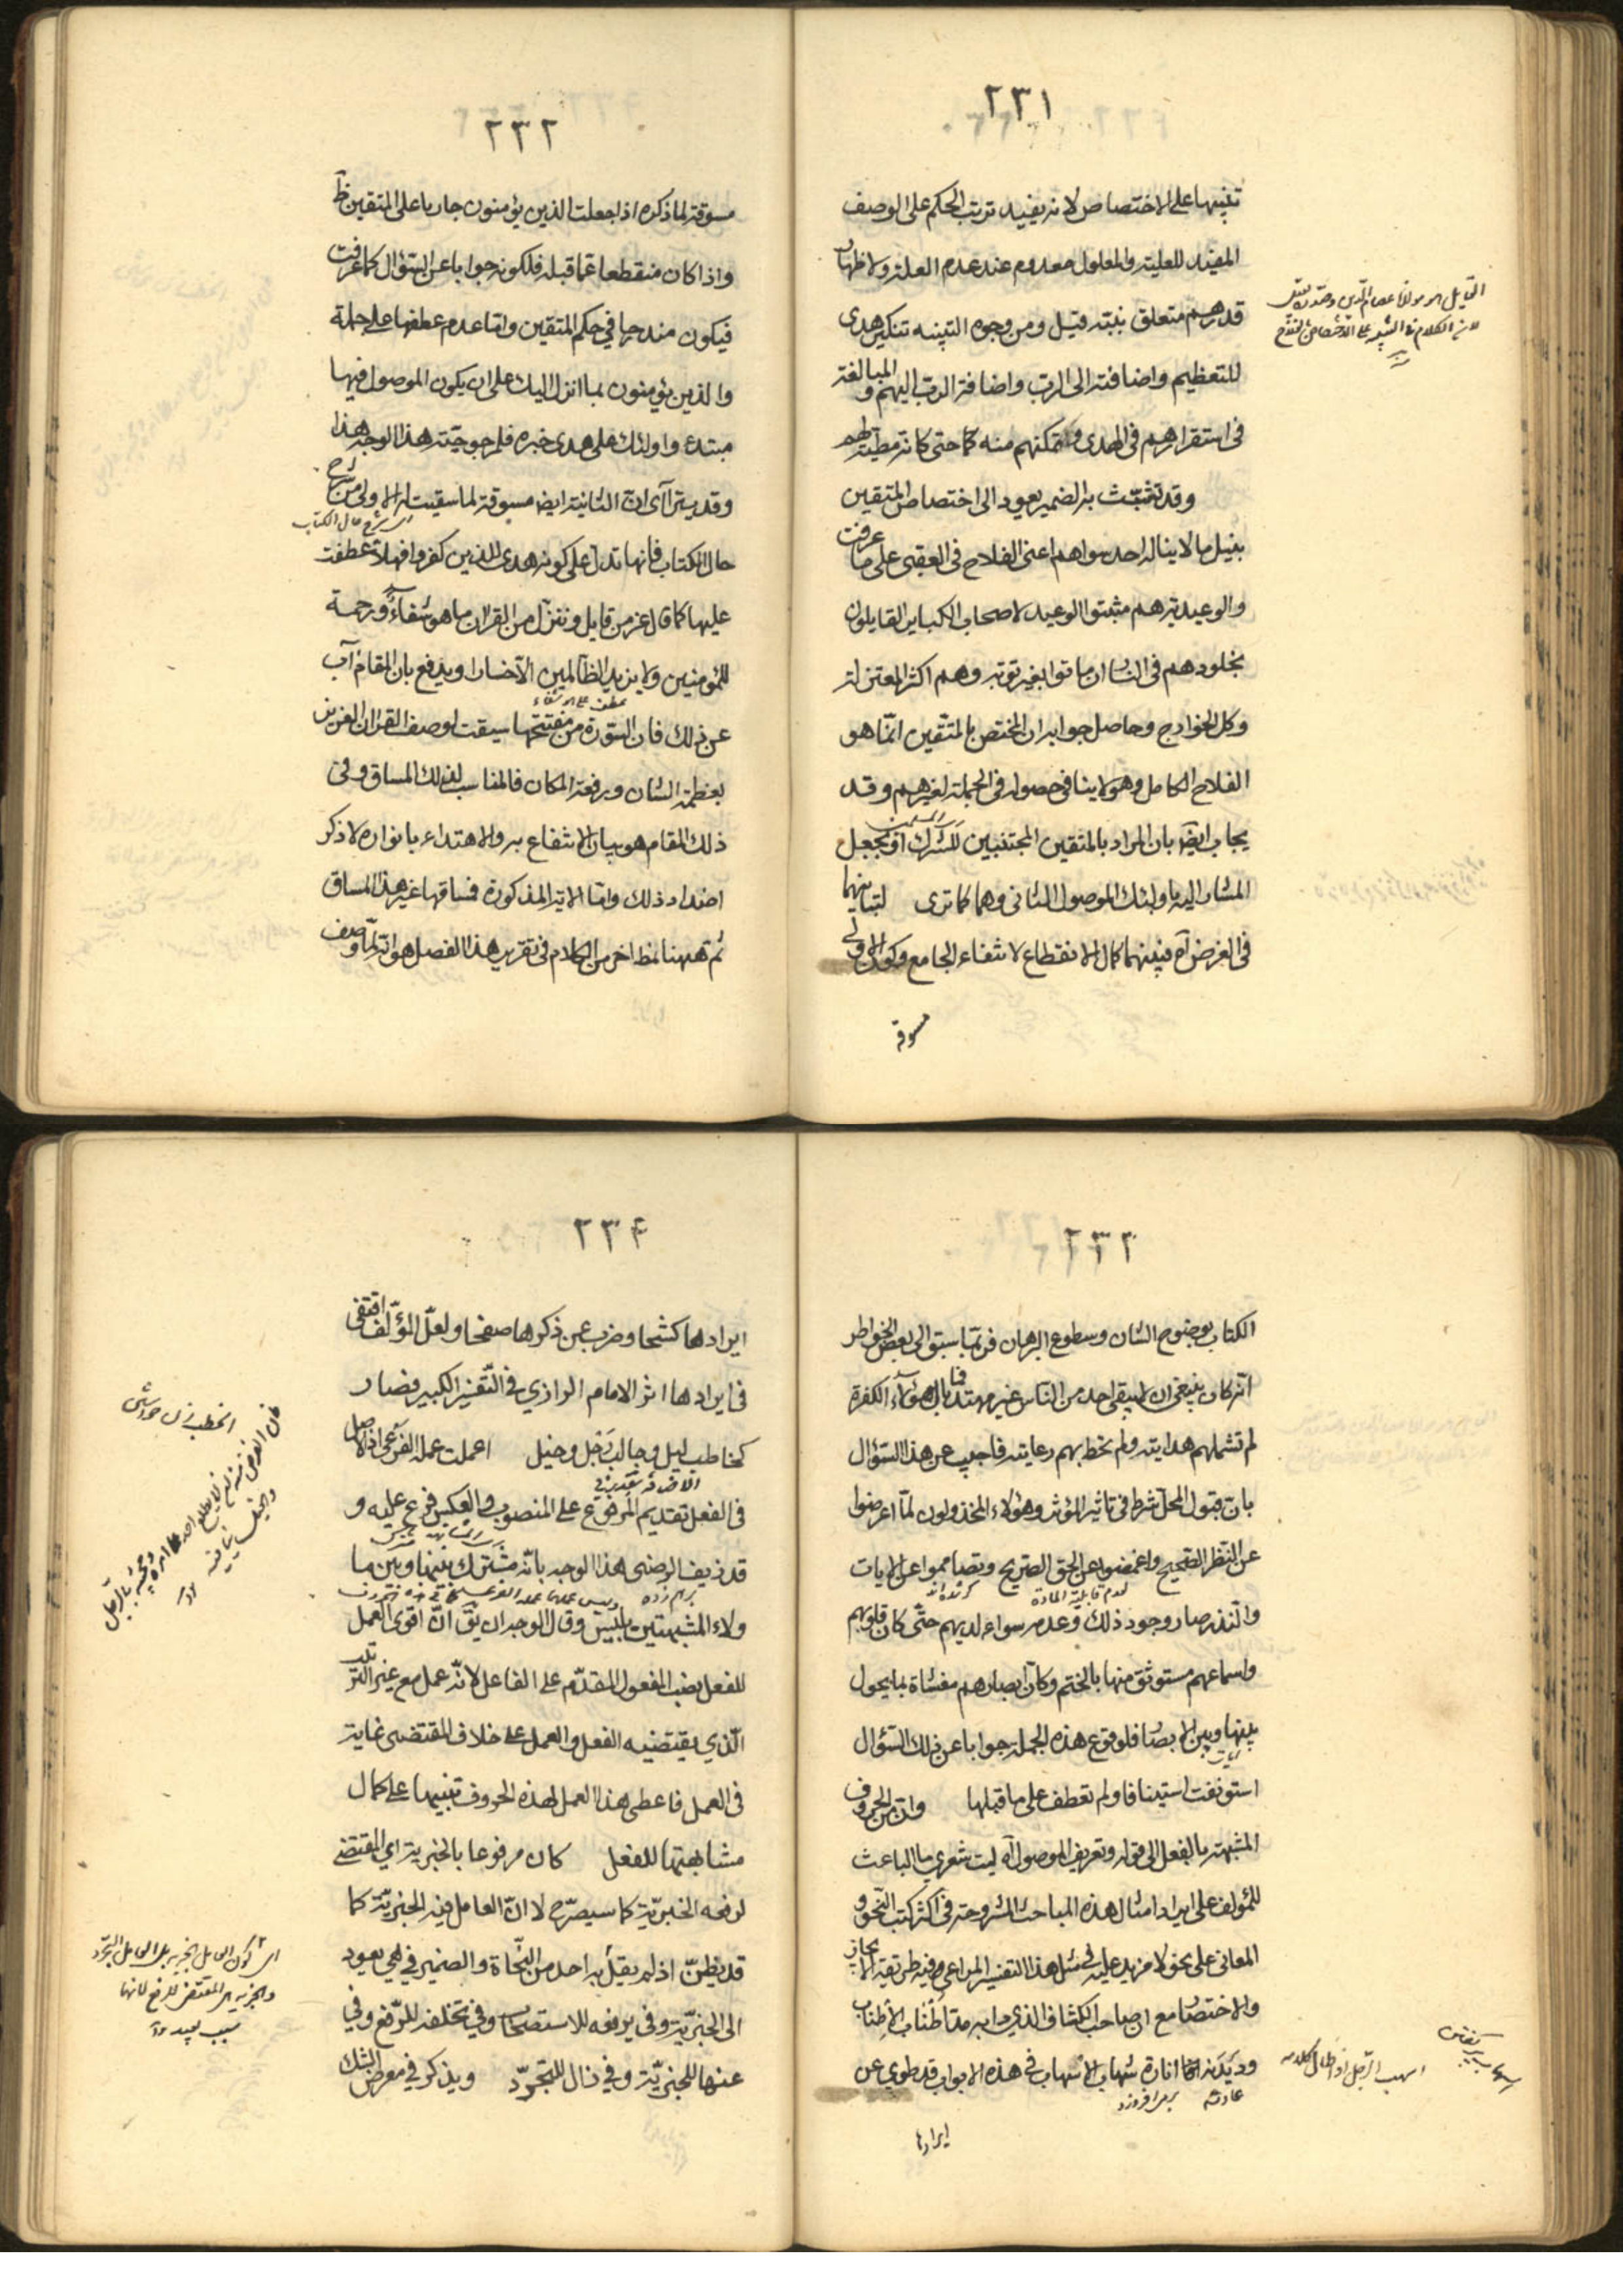 ٢٣١
تنبيها على الاختصاص لانه يفيد ترتب الحكم على الوصف
المفيد للعلية والمعلول معدوم عند عدم العلة ولاظهار
قدرهم متعلق بنبه قيل ومن وجوه التنبيه تنكير هدى
للتعظيم واضافته الى الرب واضافة الرب اليهم و المبالغة
فى استقرارهم فى الهدى و تمكنهم منه كما حتى كانه مطيتهم
وقد تشبث به الضمير يعود الى اختصاص المتقين
بنيل ما لا يناله احد سواهم اعنى الفلاح فى العقبى على ما عرفت
والوعيدية هم مثبتوا الوعيد لاصحاب الكباير القايلون
بخلودهم فى النار ان ماتوا بغير توبه وهم اكثر المعتزله
وكل الخوارج وحاصل جوابه ان المختص بالمتقين انما هو
الفلاح الكامل وهو لا ينافى حصوله فى الجملة لغيرهم وقد
يجاب ايضا بان المراد بالمتقين المجتنبين للشرك او بجعل
المشار اليه باولئك الموصول الثانى وهما كما ترى لتباينهما
فى الغرض آه فبينهما كمال الانقطاع لانتفاء الجامع وكون الاولى
مسوقة
القايل هو مولانا عصام الدين
لان الكلام فى التنبيه على الاختصاص
٢٣٢
مسوقة لما ذكره اذا جعلت الذين يؤمنون جاريا على المتقين ظ
واذا كان منقطعا عما قبله فلكونه جوابا عن السؤال كما عرفت
فيكون مندرجا في حكم المتقين واما عدم عطفها على جملة
والذين يؤمنون بما انزل اليك على ان يكون الموصول فيها
مبتدء واولئك على هدى خبره فلمرجوحيته هذا الوجه هذا
وقد يتراآى ان الثانية ايضا مسوقة لما سيقت له الاولى من شرح
اى شرح حال الكتاب
حال الكتاب فانها تدل على كونه هدى للذين كفروا فهلا عطفت
عليها كما قال عز من قايل وننزل من القران ما هو شفاء ورحمة
للمؤمنين ولا يزيد الظالمين الا خسارا ويدفع بان المقام آب
عطف على هو شفاء
عن ذلك فان السورة من مفتتحها سيقت لوصف القران العزيز
بعظمة الشان ورفعة المكان فالمناسب لذلك المساق وفى
ذلك المقام هو بيان الانتفاع به والاهتداء بانواره لا ذكر
اضداد ذلك واما الاية المذكورة فمساقها غير هذا المساق
ثم ههنا نمط اخر من الكلام فى تقرير هذا الفصل هو انه لما وصف
٢٣٣
الكتاب بوضوح الشان وسطوع البرهان فربما سبق الى بعض الخواطر
انه كان ينبغى ان لا يبقى احد من الناس غير مهتد فما بال هؤلاء الكفرة
لم تشملهم هدايته ولم تحط بهم رعايته فاجيب عن هذا السؤال
بان قبول المحل شرط فى تاثير المؤثر وهؤلاء المخذولون لما اعرضوا
عن النظر الصحيح واغمضوا عن الحق الصريح وتصامموا عن الايات
لعدم قابلية المادة
والنذر صار وجود ذلك وعدمه سواء لديهم حتى كان قلوبهم
واسماعهم مستوثق منها بالختم وكان ابصارهم مغشاة بما يحول
بينها وبين الابصار فلوقوع هذه الجملة جوابا عن ذلك السؤال
استونفت استينافا ولم تعطف على ما قبلها وان من الحروف
المشبهة بالفعل الى قوله وتعريف الموصول آه ليت شعرى ما الباعث
للمؤلف على ايراد امثال هذه المباحث المشروحة فى اكثر كتب النحو و
المعانى على نحو لا مزيد عليه فى مثل هذا التفسير المراعى فيه طريقة الايجاز
والاختصار مع ان صاحب الكشاف الذي دابه مد اطناب الاطناب
وديدنه انارة شهاب الاسهاب فى هذه الابواب قد طوى عن
عادته برافروزد
ايرادها
اسهب الرجل اذا اطال كلامه
٢٣٤
ايرادها كشحا وضرب عن ذكرها صفحا ولعل المؤلف اقتفى
فى ايرادها اثر الامام الرازي فى التفسير الكبير فصار
كحاطب ليل وجالب رجل وخيل اعملت عمله الفرعى اذ الاصل
فى الفعل تقديم المرفوع على المنصوب والعكس فرع عليه و
قد زيف الرضى هذا الوجه بانه مشترك بينها وبين ما
ولاء المشبهتين بليس وقال الوجه ان يق ان اقوى العمل
للفعل نصب المفعول المقدم على الفاعل لانه عمل مع غير الترتيب
الذي يقتضيه الفعل والعمل على خلاف المقتضى غاية
فى العمل فاعطى هذا العمل لهذه الحروف تنبيها على كمال
مشابهتها للفعل كان مرفوعا بالخبرية اي المقتضى
لرفعه الخبرية كما سيصرح لا ان العامل فيه الخبرية كما
قد يظن اذ لم يقل به احد من النحاة والضمير في هي يعود
الى الخبرية وفى يرفعه للاستصحاب وفي تخلفه للرفع وفي
عنها للخبرية وفي زال للتجرد ويذكر في معرض الشك